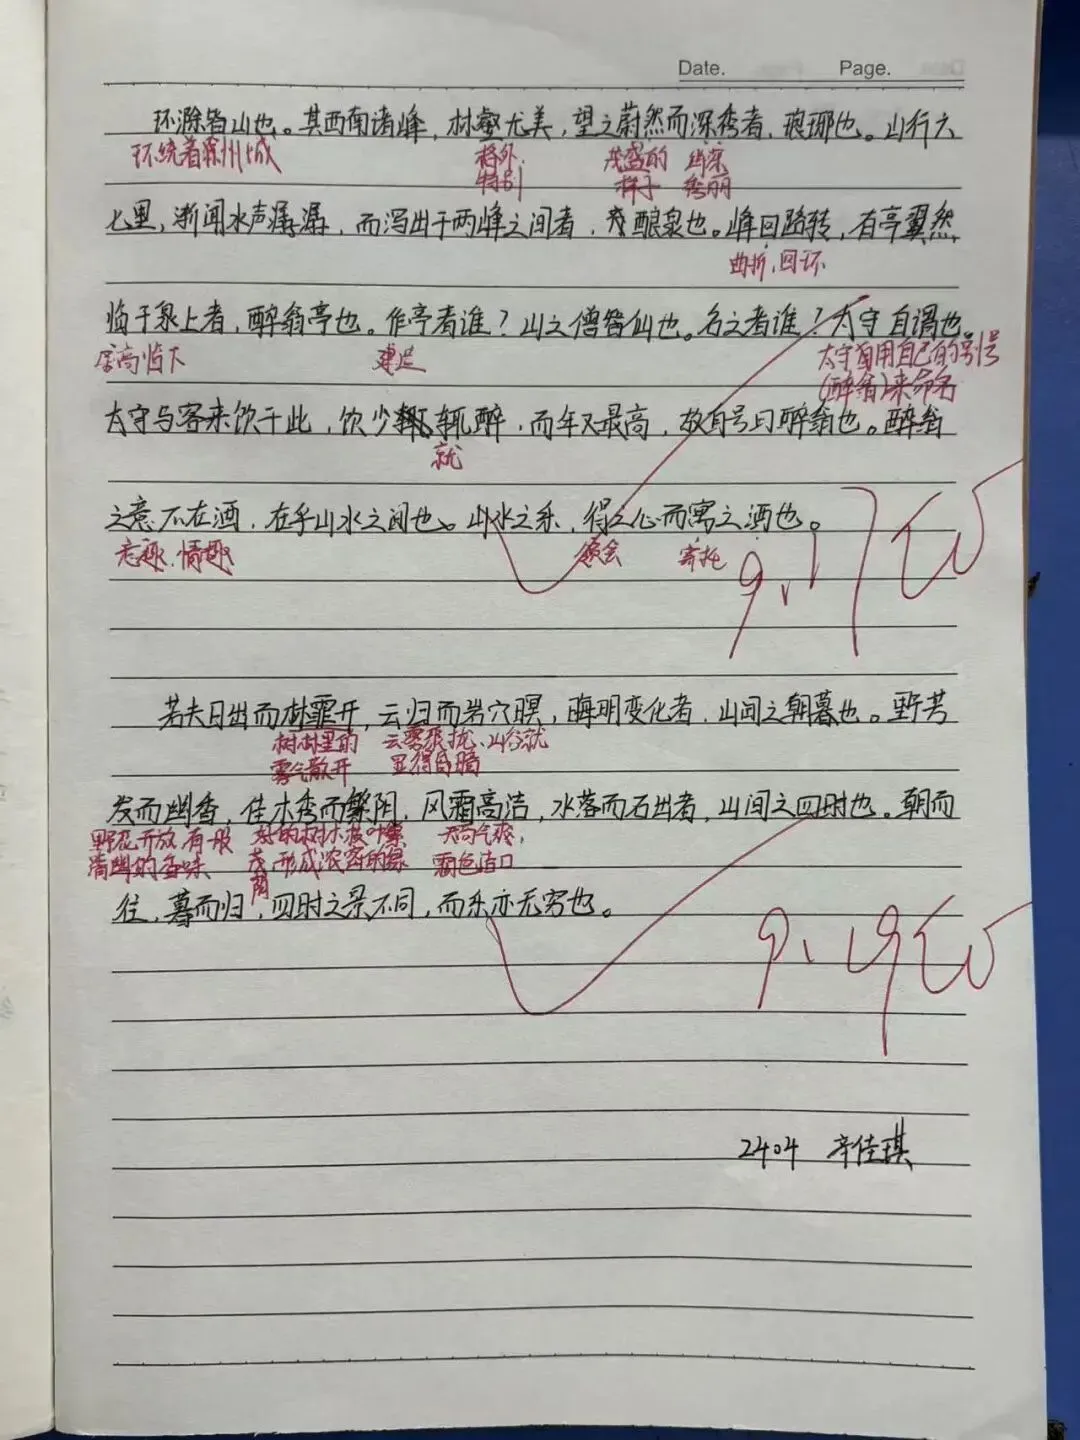 Date. Page.
环滁皆山也。其西南诸峰，林壑尤美，望之蔚然而深秀者，琅琊也。山行六
环绕着滁州城 格外、 茂盛的 幽深
特别 样子 秀丽
七里，渐闻水声潺潺，而泻出于两峰之间者，酿泉也。峰回路转，有亭翼然
曲折、回环
临于泉上者，醉翁亭也。作亭者谁？山之僧智仙也。名之者谁？太守自谓也。
居高临下 建造 太守自用自己的别号
(醉翁)来命名
太守与客来饮于此，饮少辄醉，而年又最高，故自号曰醉翁也。醉翁
就
之意不在酒，在乎山水之间也。山水之乐，得之心而寓之酒也。
志趣、情趣 领会 寄托
9.17
若夫日出而林霏开，云归而岩穴暝，晦明变化者，山间之朝暮也。野芳
树林里的 云雾聚拢、山谷就
雾气散开 显得昏暗
发而幽香，佳木秀而繁阴，风霜高洁，水落而石出者，山间之四时也。朝而
野花开放,有一股 好的树木枝叶繁 天高气爽，
清幽的香味 茂,形成浓密的绿 霜色洁白
荫
往，暮而归，四时之景不同，而乐亦无穷也。
9.19
2404 辛佳琪